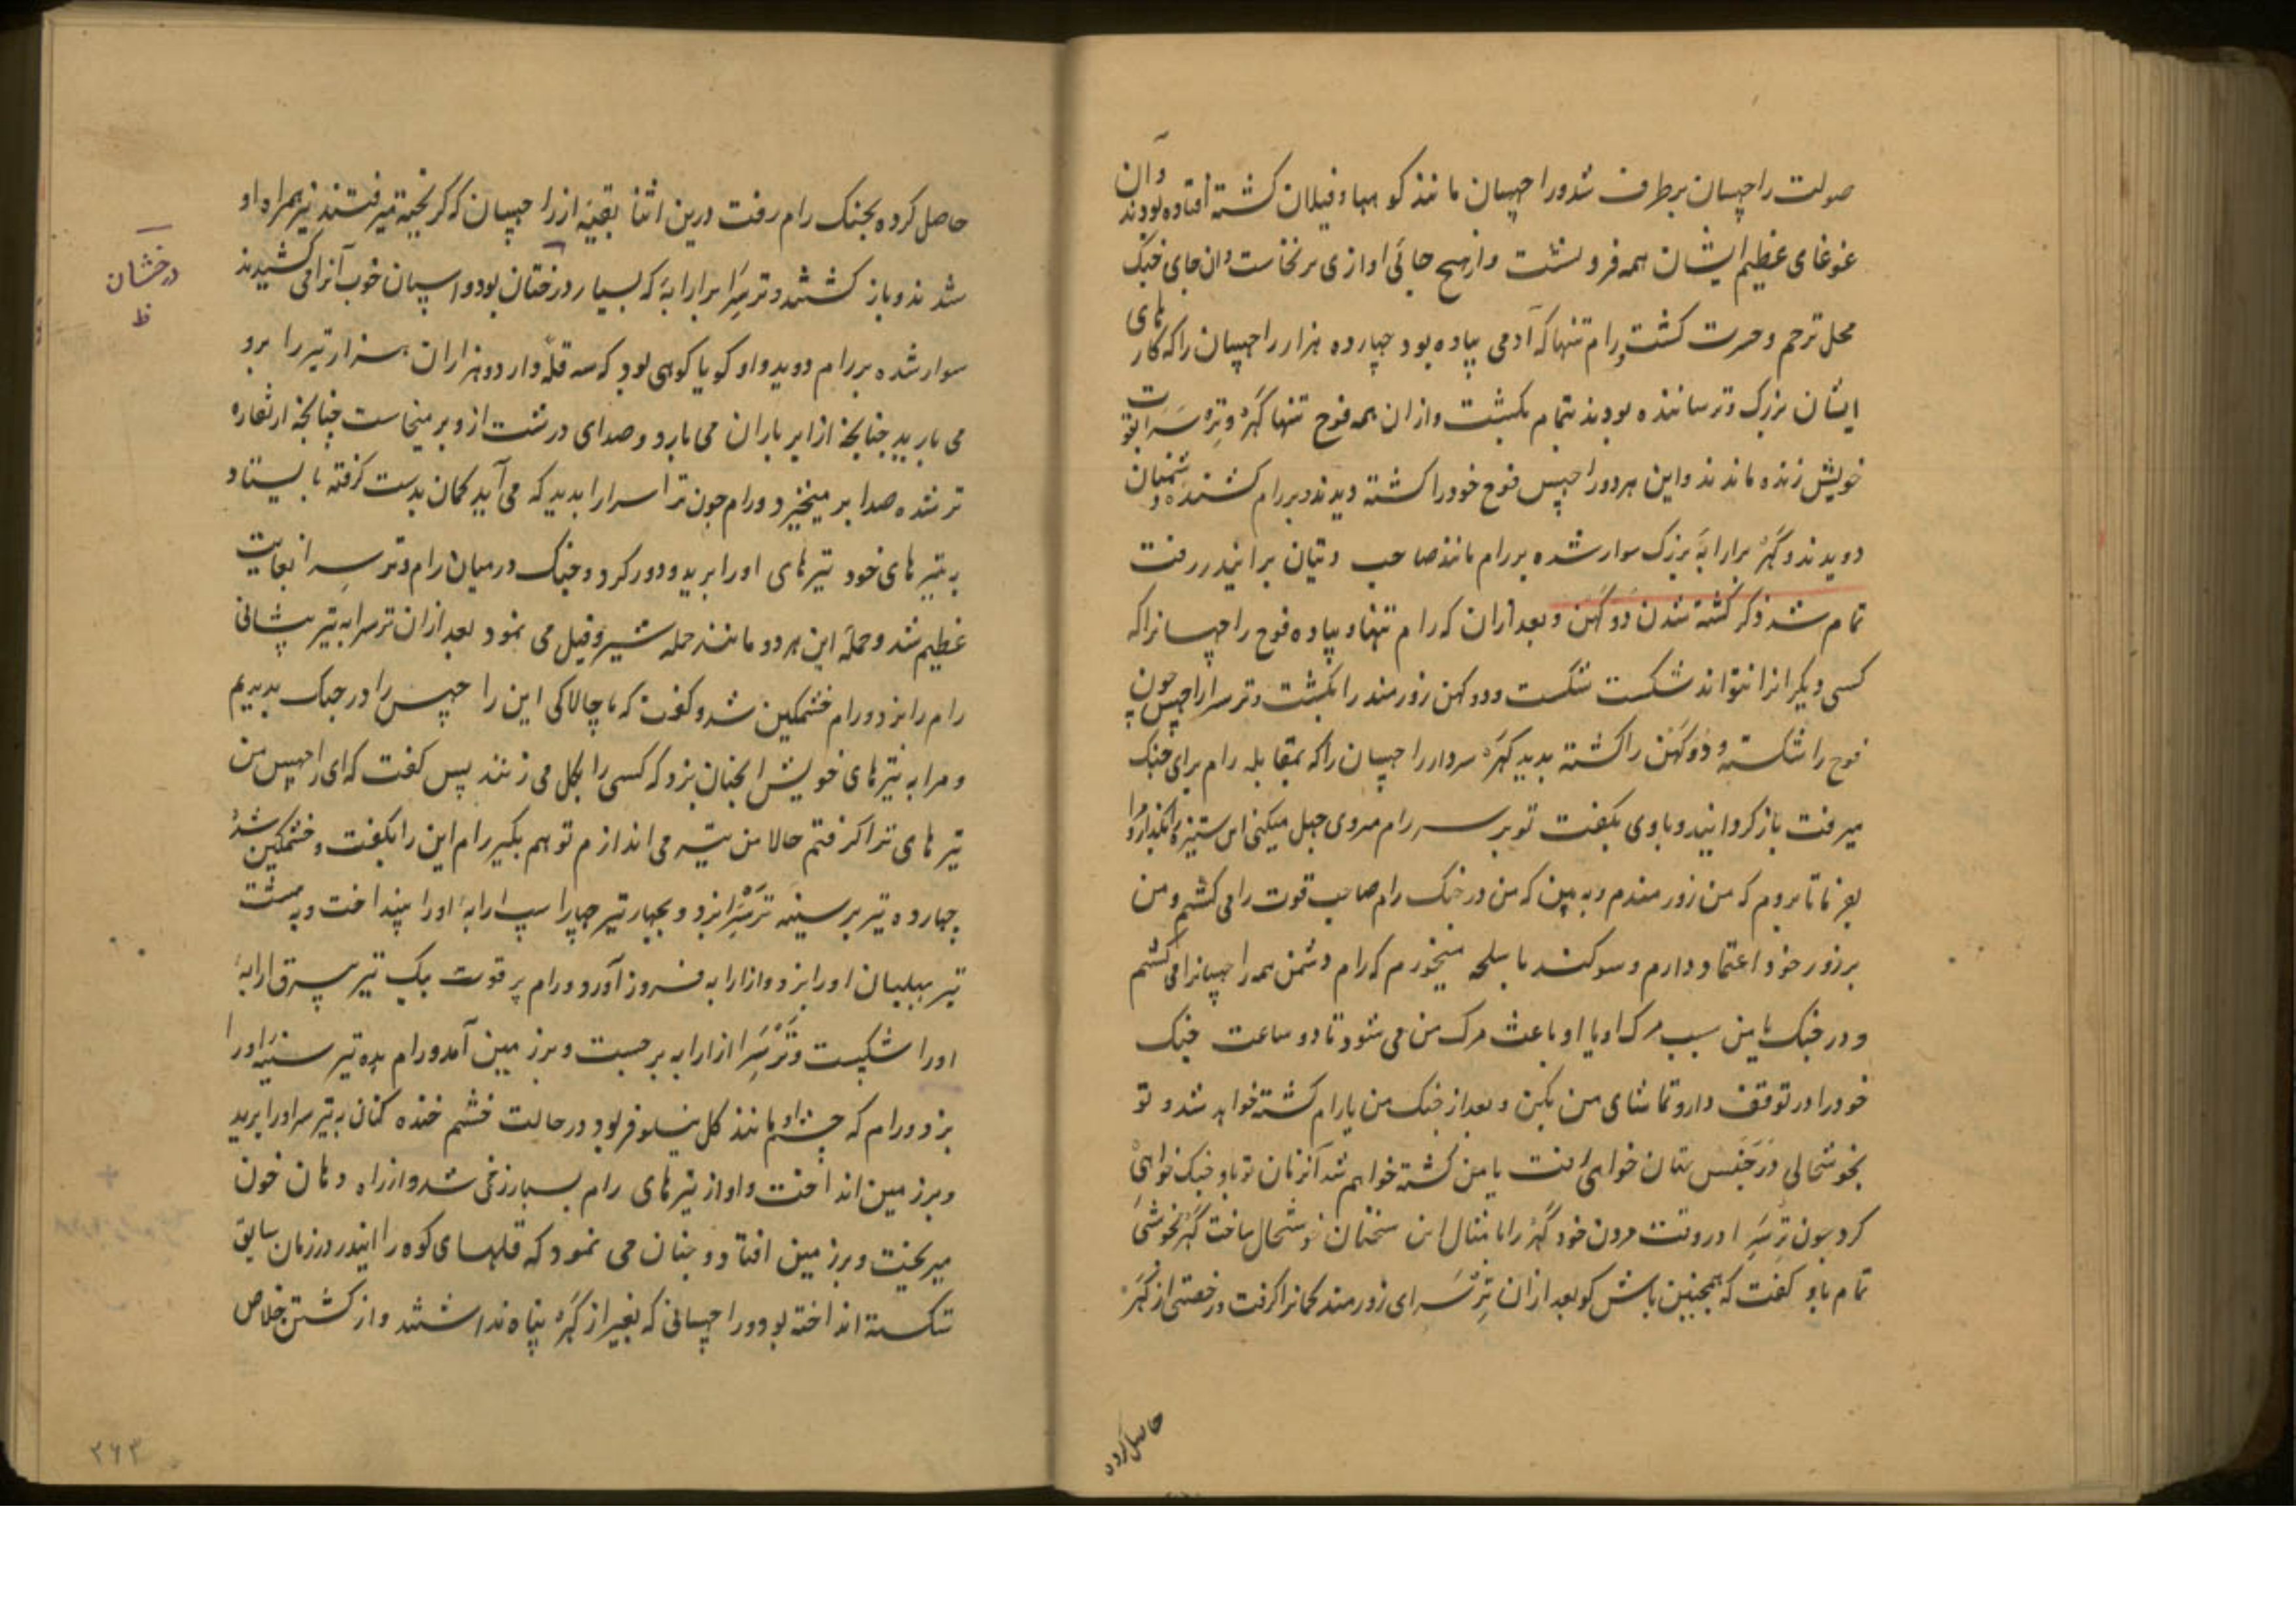 صولت راچهسان برطرف شد و راچهسان مانند کوهها و فیلان کشته افتاده بودند و آن
غوغای عظیم ایشان همه فرو نشست و از هیچ جائی اوازی برنخاست و ان جای جنک
محل ترحم و حسرت کشت و رام تنها که آدمی پیاده بود چهارده هزار راچهسان را که کارهای
ایشان بزرک و ترساننده بودند بتمام بکشت و از ان همه فوج تنها کهر و تره سرا بقوت
خویش زنده ماندند و این هر دو راچهس فوج خود را کشته دیدند و بر رام دشمنان کشنده
دویدند و کهر بر ارابهٔ بزرک سوار شده بر رام مانند صاحب دیتان بر ایندر رفت
تمام شد ذکر کشته شدن دوکهن و بعد ازان که رام تنها و پیاده فوج راچهسانرا که
کسی دیکر انرا نتواند شکست شکست و دوکهن زورمند را بکشت و ترسرا راچهس چون
فوج را شکسته و دوکهن را کشته بدید کهر سردار راچهسان را که بمقابله رام برای جنک
میرفت باز کردانید و با وی بکفت تو بر سر رام مروی جهل میکنی این ستیزه بکذار و مرا
بفرما تا بروم که من زورمندم و به بین که من در جنک رام صاحب قوت را می کشم و من
بر زور خود اعتماد دارم و سوکند با سلحه میخورم که رام دشمن همه راچهسانرا می کشم
و در جنک یا من سبب مرک او یا او باعث مرک من می شود تا دو ساعت جنک
خود را در توقف دار و تماشای من بکن و بعد از جنک من یا رام کشته خواهد شد و تو
بخوشحالی در جنستان خواهی رفت یا من کشته خواهم شد آنزمان تو باو جنک خواهی
کرد چون ترسرا در وقت مردن خود کهر را بامثال این سخنان خوشحال ساخت کهر بخوشی
تمام باو کفت که همچنین باش کو بعد ازان ترسرای زورمند کمانرا کرفت و رخصتی از کهر
حاصل کرده
حاصل کرده بجنک رام رفت درین اثنا بقیهٔ از راچهسان که کریخته میرفتند نیز همراه او
شدند و باز کشتند و ترسرا بر ارابهٔ که بسیار درختان بود و اسپان خوب آنرا می کشیدند
درخشان
ظ
سوار شده بر رام دوید و او کویا کوهی بود که سه قله دارد و هزاران هزار تیر را برو
می بارید چنانچه از ابر باران می بارد و صدای درشت از و بر میخاست چنانچه از نقاره
تر شده صدا بر میخیزد و رام چون ترسرا را بدید که می آید کمان بدست کرفته بایستاد
به تیرهای خود تیرهای او را برید و دور کرد و جنک درمیان رام و ترسرا بغایت
عظیم شد و حملهٔ این هر دو مانند حمله شیر و فیل می نمود بعد ازان ترسرا به تیر پیشانی
رام را بزد و رام خشمکین شد و کفت که چالاکی این راچهس را در جنک بدیدیم
و مرا به تیرهای خویش انچنان بزد که کسی را بکل می زنند پس کفت که ای راچهس من
تیرهای ترا کرفتم حالا من تیر می اندازم تو هم بکیر رام این را بکفت و خشمکین شد
چهارده تیر بر سینه ترسرا بزد و بچهار تیر چهار اسپ ارابهٔ او را بینداخت و به هشت
تیر بهلبان او را بزد و از ارابه فرود آورد و رام پر قوت بیک تیر بیرق ارابهٔ
او را شکست و ترسرا از ارابه برجست و بر زمین آمد و رام بده تیر سینهٔ او را
بزد و رام که چشم او مانند کل نیلوفر بود در حالت خشم خنده کنان به تیر سر او را برید
و بر زمین انداخت و او از تیرهای رام بسیار زخمی شد و از راه دهان خون
میریخت و بر زمین افتاد و چنان می نمود که قلهای کوه را ایندر در زمان سابق
شکسته انداخته بود و راچهسانی که بغیر از کهر پناه نداشتند و از کشتن خلاص
۳۶۳